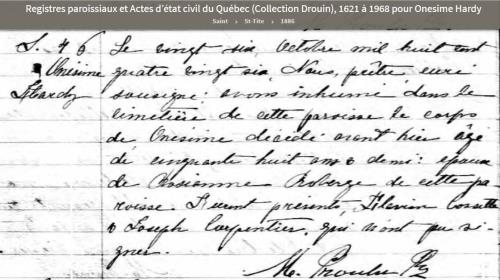 Registres paroissiaux et Actes d'état civil du Québec (Collection Drouin), 1621 à 1968 pour Onesime Hardy
Saint › St-Tite › 1886
S. 46
Onesime
Hardy
Le vingt six, Octobre mil huit cent
quatre vingt six, Nous, prêtre, curé
sousigné avons inhumé dans le
cimetière de cette paroisse le corps
de Onesime décédé avant hier âgé
de cinquante huit ans & demi: epoux
de Roberge de cette pa
roisse. Furent présents,
& Joseph Carpentier, qui n'ont pu si
gner.
M. Proulx Ptre